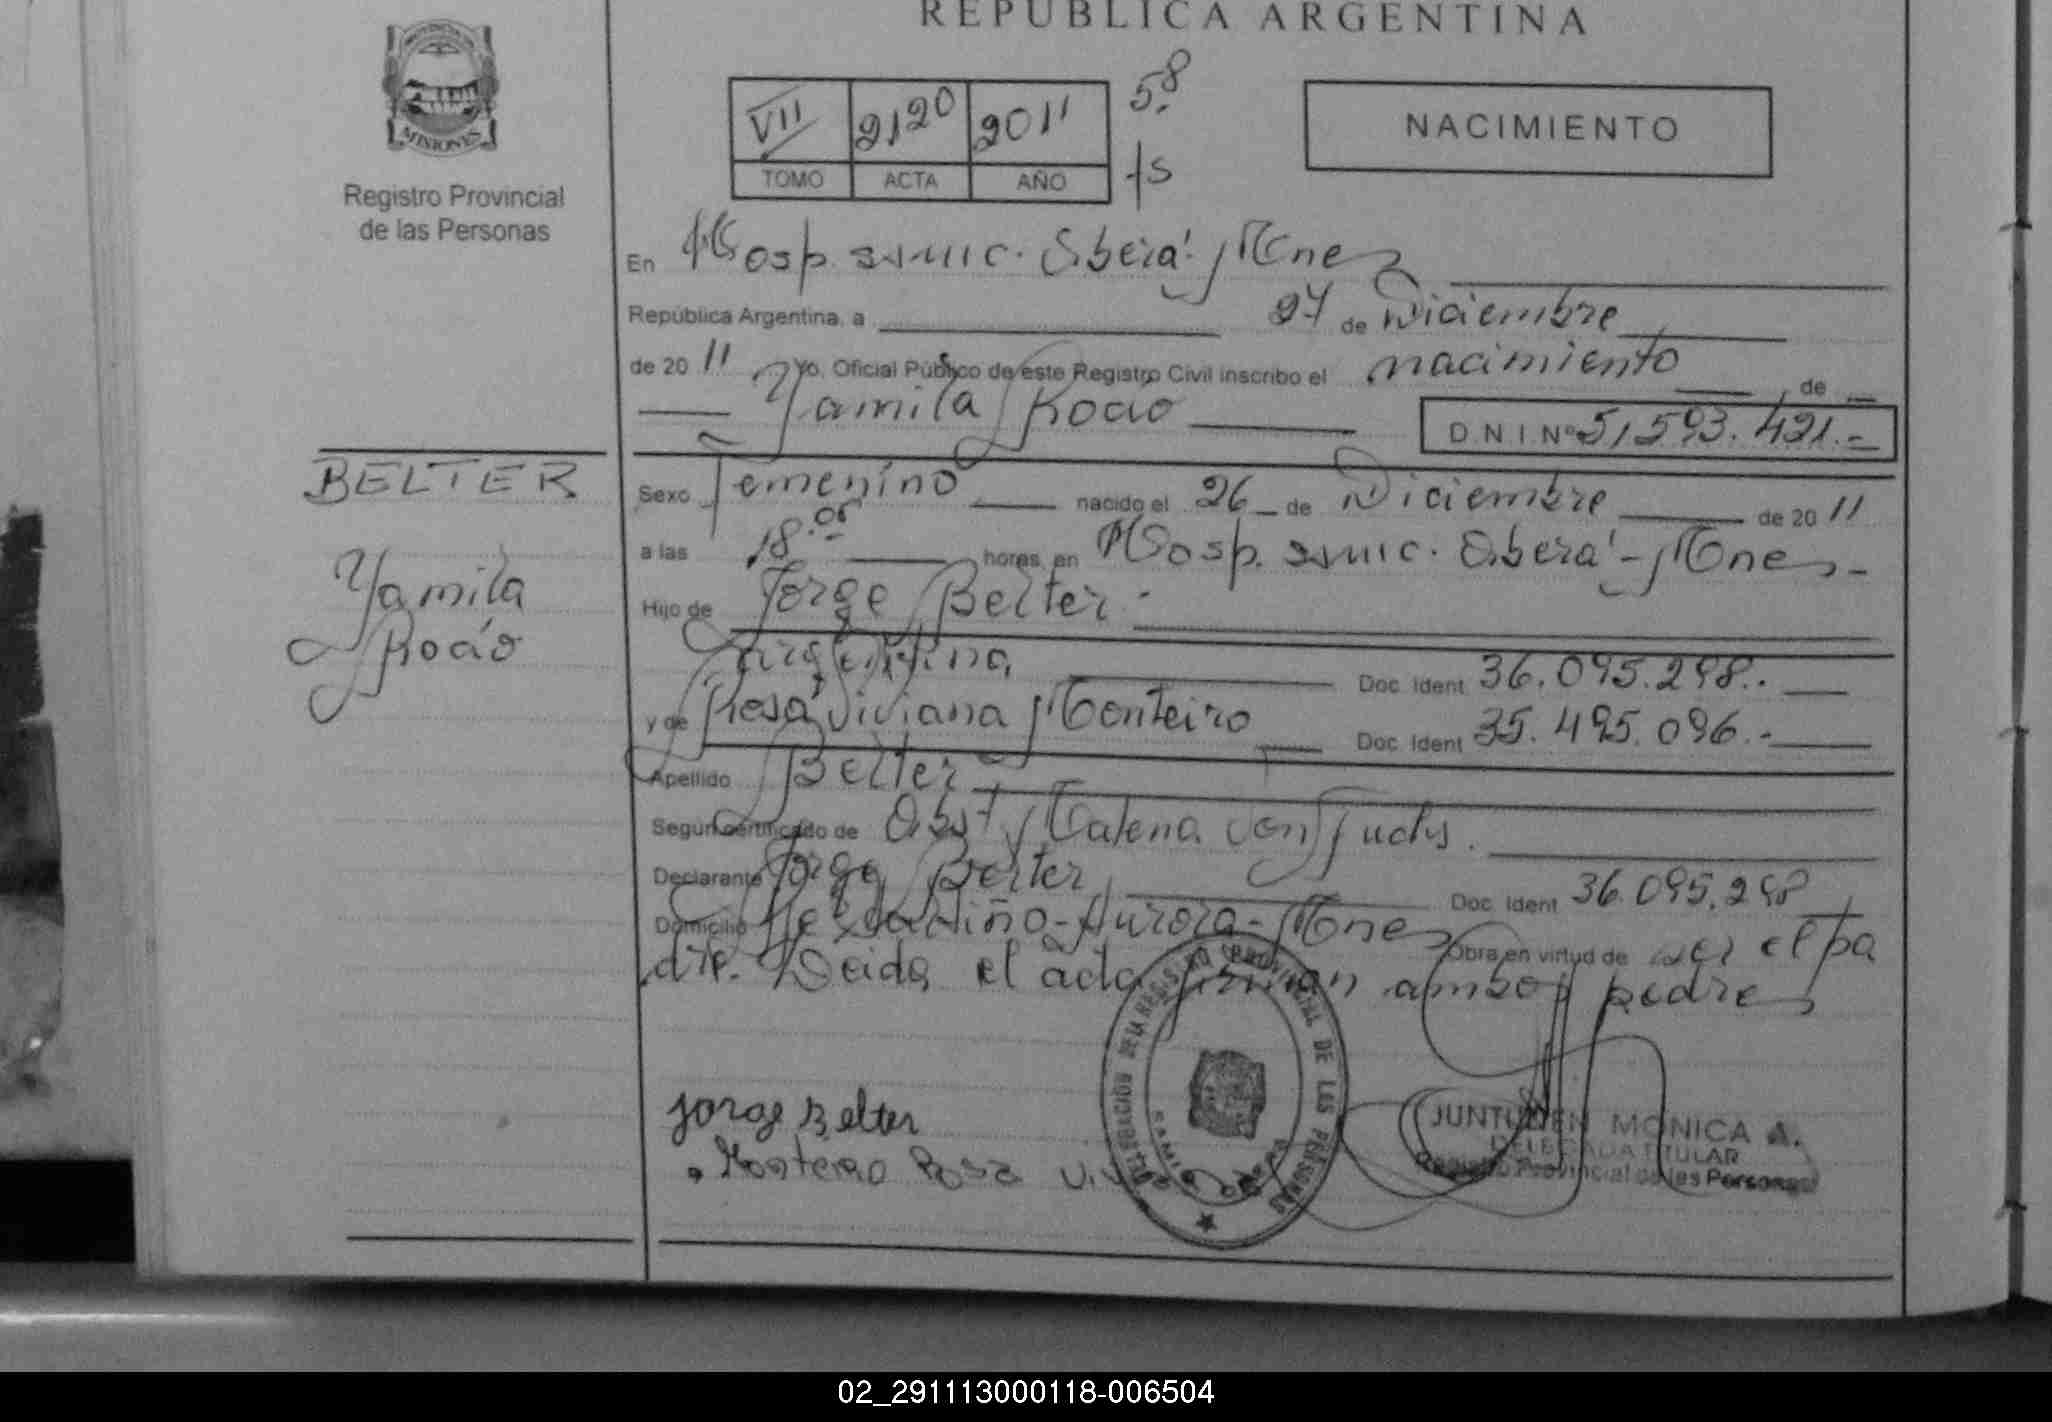 REPUBLICA ARGENTINA
PROVINCIA DE
MISIONES
Registro Provincial
de las Personas
VII 2120 2011 58
TOMO ACTA AÑO fs
NACIMIENTO
En Hosp. SAMIC. Oberá. Mnes
República Argentina, a 27 de Diciembre
de 20 11 Yo, Oficial Público de este Registro Civil inscribo el nacimiento de
Yamila Rocío
D N I Nº 51,593.421.-
BELTER
Yamila
Rocío
Sexo Femenino nacido el 26 de Diciembre de 20 11
a las 18.05 horas, en Hosp. SAMIC. Oberá - Mnes -
Hijo de Jorge Belter.
Argentino Doc. Ident 36.095.298..
y de Rosa Viviana Monteiro Doc. Ident 35.495.096.-
Apellido Belter
Según certificado de Obst. Malena Von Fuchs.
Declarante Jorge Belter Doc. Ident 36.095.298
Domicilio Aurora - Mnes Obra en virtud de ser el pa
dre. Leida el acta firman ambos padres
Jorge Belter
Monteiro Rosa Viv
REGISTRO PROVINCIAL DE LAS PERSONAS
MONICA A.
DELEGADA TITULAR
Registro Provincial de las Personas
02_291113000118-006504